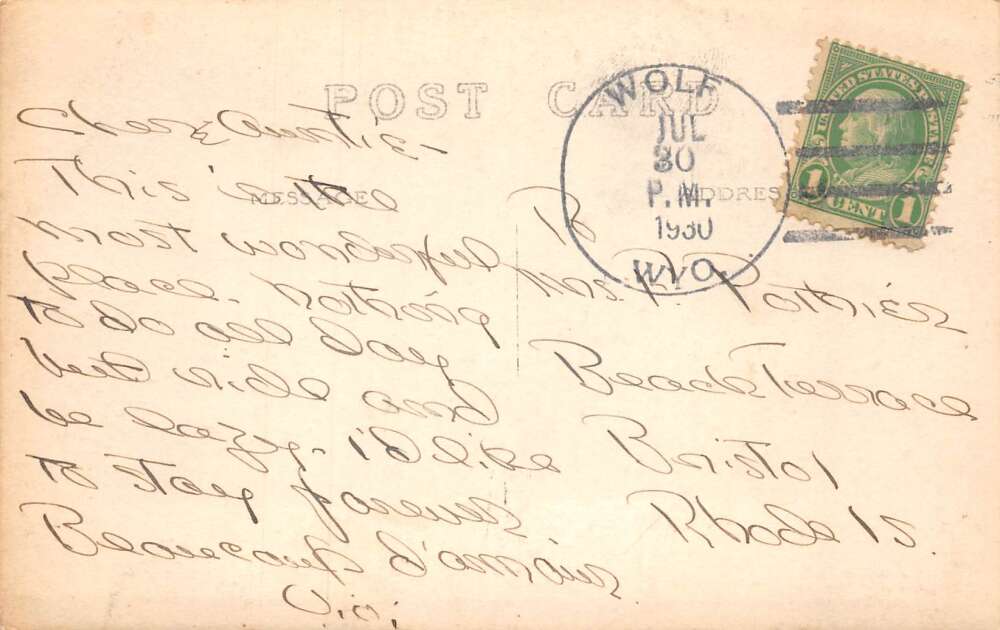 POST CARD
WOLF
JUL
30
P.M.
1930
WYO.
UNITED STATES POSTAGE
1 CENT 1
MESSAGE
ADDRESS
Cher Auntie-
This is the
most wonderful
place. nothing
to do all day
but ride and
be lazy. I'd like
to stay forever
Beaucoup d'amour
Vi.
To
Mrs. P. Pothier
Beach Terrace
Bristol
Rhode Is.